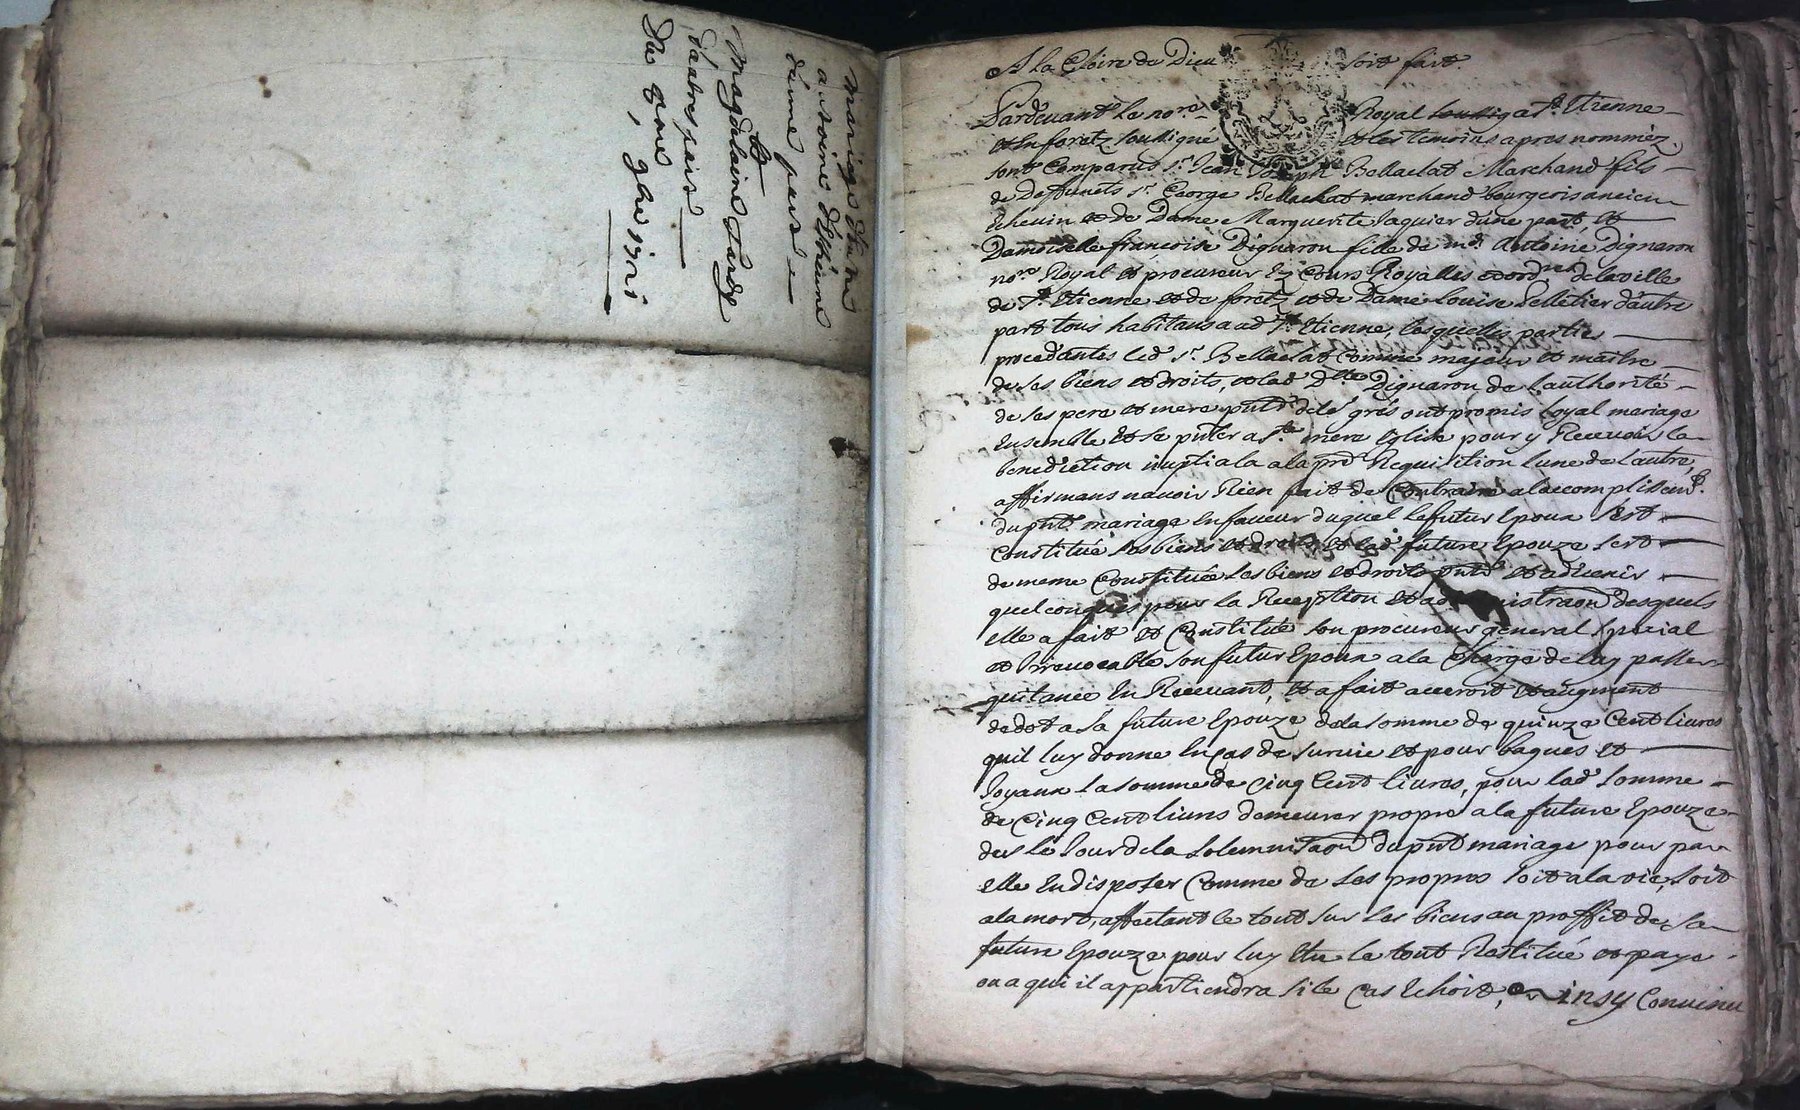 mariage d'entre
antoine delhiene
d'une part
Et
Magdelaine
d'autre part
Du
A la Gloire de Dieu soit fait.
Pardevant le nore Royal soussigné a St. Etienne
et en foretz soussigné et les temoins apres nommèz.
sont Comparus sr. Jean Joseph Bellaclat Marchand fils
de deffunts sr. George Bellaclat marchand bourgeois ancien
Echevin et de Dame Marguerite Jaquier d'une part, et
Damoiselle françoise Dignaron fille de me. Antoine Dignaron
nore. Royal et procureur Ez Cours Royalles de la ville
de St. Etienne et de foretz et de Dame Louise Pelletier d'autre
part tous habitans aud St. Etienne, lesquelles parties
procedantes led sr. Bellaclat comme majeur et maitre
de ses biens et droits, et lad Dlle Dignaron de l'authorité
de ses pere et mere pnts de le' grés ont promis loyal mariage
Ensemble et se pnter a Ste mere Eglise pour y Recevoir la
benediction nuptiala a la pre Requisition l'une de l'autre,
affirmans n'avoir Rien fait de Contraire al'accomplissemt.
du pnt. mariage En faveur duquel le futur Epoux s'est
Constitué ses biens et droits et lad. future Epouze s'est
de meme Constituée ses biens et droits pnts et advenir
quelconques pour la Reception et administraon desquels
elle a fait et Constitué son procureur general special
et Irrevocable son futur Epoux a la Charge de luy passer
quitance En Recevant, et a fait accroit et augment
de dot a sa future Epouze de la somme de quinze Cent livres
qu'il luy donne En cas de survie et pour bagues et
Joyaux la somme de Cinq Cent livres, pour lad somme
de Cinq Cent livres demeurer propre a la future Epouze
des le Jour de la solemnisaon du pnt mariage pour par
elle En disposer Comme de ses propres soit a la vie, soit
a la mort, affectant le tout sur les biens au proffit de sa
future Epouze pour luy Etre le tout Restitué et payé
ou a qui il appartiendra si le Cas Echoit, ainsy Convenu